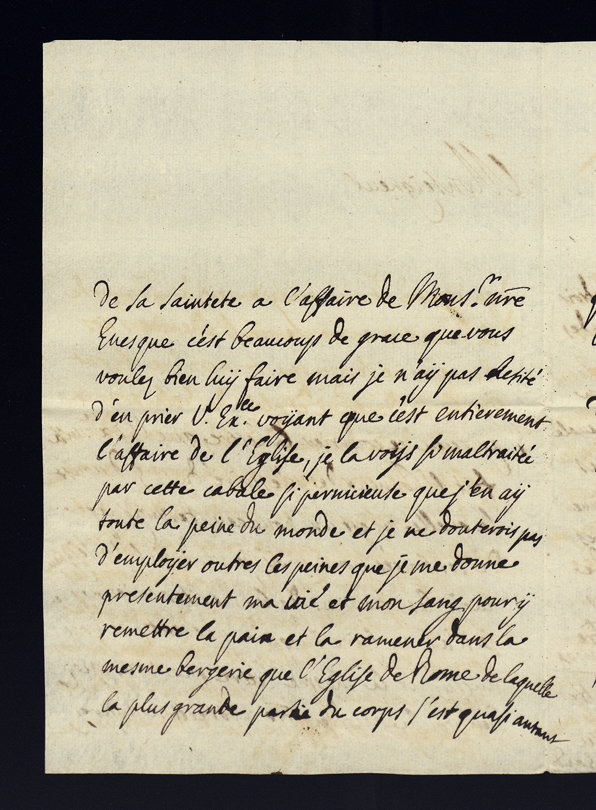 de sa sainteté a l'affaire de Mons.r nre
Euesque c'est beaucoup de grace que vous
voulez bien luy faire mais je n'aÿ pas hesité
d'en prier V. Ex.ce voyant que c'est entierement
l'affaire de l'Eglise, je la voÿs si maltraitée
par cette cabale si pernicieuse que j'en aÿ
toute la peine du monde et je ne douterois pas
d'employer outres les peines que je me donne
presentement ma vie et mon sang pour ÿ
remettre la paix et la ramener dans la
mesme bergerie que l'Eglise de Rome de laquelle
la plus grande partie du corps s'est quasi autant